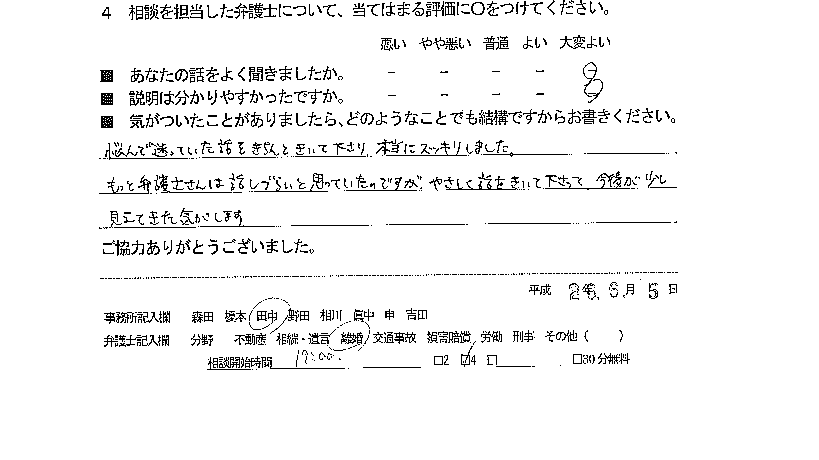 4 相談を担当した弁護士について、当てはまる評価に○をつけてください。
悪い やや悪い 普通 よい 大変よい
■ あなたの話をよく聞きましたか。 － － － － －
■ 説明は分かりやすかったですか。 － － － －
■ 気がついたことがありましたら、どのようなことでも結構ですからお書きください。
悩んで迷っていた話をきちんときいて下さり 本当にスッキリしました。
もっと弁護士さんは話しづらいと思っていたのですが、やさしく話をきいて下さって、今後が少し
見えてきた気がします
ご協力ありがとうございました。
平成 26年 6月 5日
事務所記入欄 森田 榎本 田中 野田 相川 眞中 申 吉田
弁護士記入欄 分野 不動産 相続・遺言 離婚 交通事故 損害賠償 労働 刑事 その他（ ）
相談開始時間 □2 □4 □ □30分無料